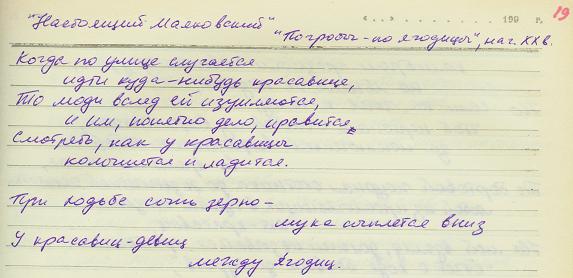 "Настоящий Маяковский"
"..." ........ 199 г.
19
"По грозы - по ягодицы", нач. XX в.
Когда по улице случается
идти куда-нибудь красавице,
То люди вслед ей изумляются,
и им, понятно дело, нравится,
Смотреть, как у красавицы
колышется и ладится.
При ходьбе сыпь зерно -
мука сыплется вниз
У красавиц-девиц
между ягодиц.